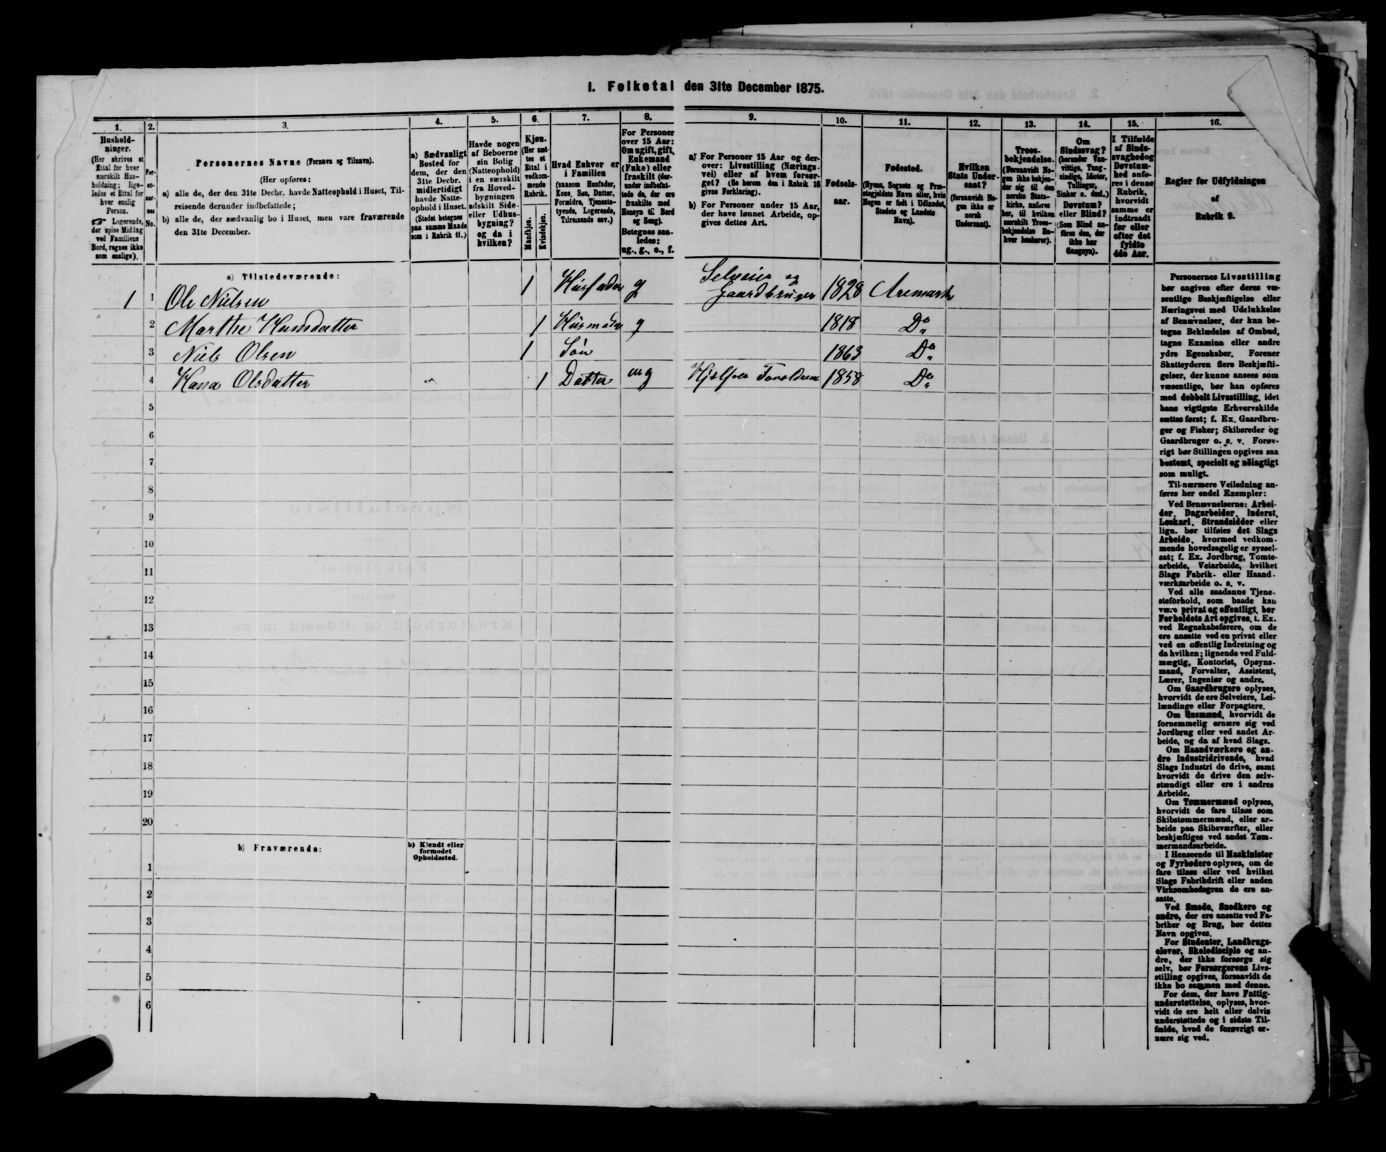 1. Folketal den 31te December 1875.
1.
2.
3.
4.
5.
6.
7.
8.
9.
10.
11.
12.
13.
14.
15.
16.
Hushold-
ninger.
(Her skrives et
Ettal for hver
særskilt Hus-
holdning; lige-
ledes et Ettal for
hver enslig
Person.
☞ Logerende,
der spise Middag
ved Familiens
Bord, regnes ikke
som enslige).
Per-
so-
ner-
nes
No.
Personernes Navne (Fornavn og Tilnavn).
(Her opføres:
a) alle de, der den 31te Decbr. havde Natteophold i Huset, Til-
reisende derunder indbefattede;
b) alle de, der sædvanlig bo i Huset, men vare fraværende
den 31te December.
a) Sædvanligt
Bosted for
dem, der den
31te Decbr.
midlertidigt
havde Natte-
ophold i Huset.
(Stedet betegnes
paa samme Maade
som i Rubrik 11.)
Havde nogen
af Beboerne
sin Bolig
(Natteophold)
i en særskilt
fra Hoved-
bygningen
adskilt Side-
eller Udhus-
bygning?
og da i
hvilken?
Kjøn.
(Her sæt-
tes et
Ettal i
vedkom-
mende
Rubrik.
Mandkjøn.
Kvindekjøn.
Hvad Enhver er
i Familien
(saasom Husfader,
Kone, Søn, Datter,
Forældre, Tjeneste-
tyende, Logerende,
Tilreisende osv.)
For Personer
over 15 Aar:
Om ugift, gift,
Enkemand
(Enke) eller
fraskilt (der-
under indbefat-
tede de, der ere
fraskilte med
Hensyn til Bord
og Seng).
Betegnes saa-
ledes:
ug., g., e., f.
a) For Personer 15 Aar og der-
over: Livsstilling (Nærings-
vei) eller af hvem forsør-
get? (Se herom den i Rubrik 16
givne Forklaring).
b) For Personer under 15 Aar,
der have lønnet Arbeide, op-
gives dettes Art.
Fødsels-
aar.
Fødested.
(Byens, Sognets og Præ-
stegjeldets Navn eller, hvis
Nogen er født i Udlandet,
Stedets og Landets
Navn).
Hvilken
Stats Under-
saat?
(forsaavidt No-
gen ikke er
norsk
Undersaat).
Troes-
bekjendelse.
(Forsaavidt No-
gen ikke bekjen-
der sig til den
norske Stats-
kirke, anføres
her, til hvilken
anden Troes-
bekjendelse En-
hver henhører).
Om
Sindssvag?
(herunder Van-
vittige, Tung-
sindige, Idioter,
Tullinger,
Sinker o. desl.)
Døvstum?
eller Blind?
(Som Blind an-
føres den, der
ikke har
Gangsyn).
I Tilfælde
af Sinds-
svaghed og
Døvstum-
hed anfø-
res i denne
Rubrik,
hvorvidt
samme er
indtraadt
før eller
efter det
fyldte
4de Aar.
Regler for Udfyldningen
af
Rubrik 9.
a) Tilstedeværende:
1 1 Ole Nielsen 1 Husfader g Selveier og Gaardbruger 1828 Aremark
2 Marthe Hansdatter 1 Husmoder g 1818 Do
3 Niels Olsen 1 Søn 1863 Do
4 Hana Olsdatter 1 Datter ug Hjelper Foreldrene 1858 Do
5
6
7
8
9
10
11
12
13
14
15
16
17
18
19
20
b) Fraværende:
b) Kjendt eller
formodet
Opholdssted.
1
2
3
4
5
6
Personernes Livsstilling
bør angives efter deres væ-
sentlige Beskjæftigelse eller
Næringsvei med Udelukkelse
af Benævnelser, der kun be-
tegne Beklædelse af Ombud,
tagne Examina eller andre
ydre Egenskaber. Forener
Skatteyderen flere Beskjæfti-
gelser, der kunne ansees som
væsentlige, bør han opføres
med dobbelt Livsstilling, idet
hans vigtigste Erhvervskilde
sættes først; f. Ex. Gaardbru-
ger og Fisker; Skibsreder og
Gaardbruger o. s. v. Forøv-
rigt bør Stillingen opgives saa
bestemt, specielt og nøiagtigt
som muligt.
Til nærmere Veiledning an-
føres her endel Exempler:
Ved Benævnelserne: Arbei-
der, Dagarbeider, Inderst,
Løskarl, Strandsidder eller
lign. bør tilføies det Slags
Arbeide, hvormed vedkom-
mende hovedsagelig er syssel-
sat; f. Ex. Jordbrug, Tomte-
arbeide, Veiarbeide, hvilket
Slags Fabrik- eller Haand-
værksarbeide o. s. v.
Ved alle saadanne Tjene-
steforhold, som baade kan
være privat og offentligt, bør
Forholdets Art opgives, t. Ex.
ved Regnskabsførere, om de
ere ansatte ved en privat eller
ved en offentlig Indretning og
da hvilken; lignende ved Fuld-
mægtig, Kontorist, Opsyns-
mand, Forvalter, Assistent,
Lærer, Ingeniør og andre.
Om Gaardbrugere oplyses,
hvorvidt de ere Selveiere, Lei-
lændinge eller Forpagtere.
Om Husmænd, hvorvidt de
fornemmelig ernære sig ved
Jordbrug eller ved andet Ar-
beide, og da af hvad Slags.
Om Haandværkere og an-
dre Industridrivende, hvad
Slags Industri de drive, samt
hvorvidt de drive den selv-
stændigt eller ere i andres
Arbeide.
Om Tømmermænd oplyses,
hvorvidt de fare tilsøs som
Skibstømmermænd, eller ar-
beide paa Skibsværfter, eller
beskjæftiges ved andet Tøm-
mermandsarbeide.
I Henseende til Maskinister
og Fyrbødere oplyses, om de
fare tilsøs eller ved hvilket
Slags Fabrikdrift eller anden
Virksomhedsgren de ere an-
satte.
Ved Smede, Snedkere og
andre, der ere ansatte ved Fa-
briker og Brug, bør dettes
Navn opgives.
For Studenter, Landbrugs-
elever, Skoledisciple og an-
dre, der ikke forsørge sig
selv, bør Forsørgerens Livs-
stilling opgives, forsaavidt de
ikke bo sammen med denne.
For dem, der have Fattig-
understøttelse, oplyses, hvor-
vidt de ere helt eller delvis
understøttede og i sidste Til-
fælde, hvad de forøvrigt er-
nære sig ved.